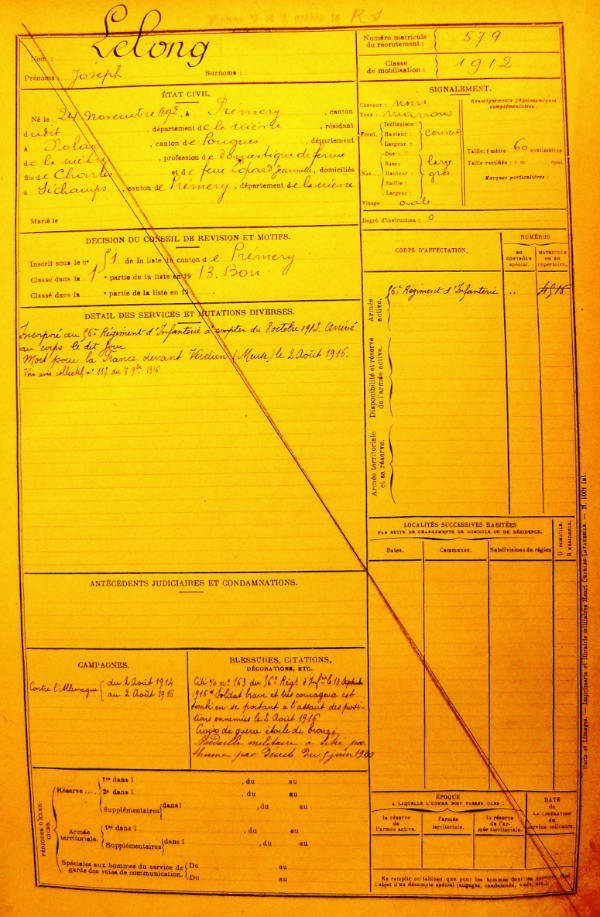 Lelong
Nom :
Prénoms : Joseph Surnoms :
Numéro matricule du recrutement : 579
Classe de mobilisation : 1912
ÉTAT CIVIL.
Né le 24 novembre 1892, à Prémery, canton
dudit, département de la nièvre, résidant
à canton de Pougues, département
de la nièvre, profession de domestique de ferme
fils de Charles et de feue domiciliés
à Sichamps, canton de Prémery, département de la nièvre
Marié le
SIGNALEMENT.
Cheveux : noirs
Yeux : marrons
Front, Inclinaison :
Hauteur :
Largeur :
Nez, Dos :
Base : large
Hauteur : gros
Saillie :
Largeur :
Visage : ovale
Renseignements physionomiques complémentaires :
Taille : 1 mètre 60 centimètres
Taille rectifiée : 1 m. cent.
Marques particulières :
Degré d'instruction : 0
DÉCISION DU CONSEIL DE REVISION ET MOTIFS.
Inscrit sous le n° 51 de la liste de canton de Prémery
Classé dans la 1 partie de la liste en 1913. Bon
Classé dans la partie de la liste en 19
DÉTAIL DES SERVICES ET MUTATIONS DIVERSES.
Incorporé au 56e Régiment d'Infanterie à compter du 8 octobre 1913. Arrivé
au corps le dit jour
Mort pour la France devant Verdun (Meuse) le 2 Août 1916.
Vu avis collectif n° 117 du 8 9bre 1916
CORPS D'AFFECTATION.
NUMÉROS
au contrôle spécial.
MATRICULE ou au répertoire.
Armée active.
56e Régiment d'Infanterie
Disponibilité et réserve de l'armée active.
Armée territoriale et sa réserve.
LOCALITÉS SUCCESSIVES HABITÉES
PAR SUITE DE CHANGEMENTS DE DOMICILE OU DE RÉSIDENCE.
Dates. Communes. Subdivisions de région. D DOMICILE. R RÉSIDENCE.
ANTÉCÉDENTS JUDICIAIRES ET CONDAMNATIONS.
CAMPAGNES.
Contre l'Allemagne
du 2 Août 1914
au 2 Août 1916
BLESSURES, CITATIONS,
DÉCORATIONS, ETC.
Cité n° 163 du 56e Régt d'Infie le
1916 "Soldat brave et très courageux est
tombé en se portant à l'assaut des posi-
tions ennemies le 2 Août 1916
Croix de guerre étoile de bronze
Médaille militaire à titre pos-
thume par Décret du juin 1920
PÉRIODES D'EXERCICES.
Réserve
1re dans l , du au
2e dans l , du au
Supplémentaires dans l , du au
Armée territoriale.
1re dans l , du au
Supplémentaires dans l , du au
Spéciales aux hommes du service de garde des voies de communication.
Du au
Du au
ÉPOQUE
A LAQUELLE L'HOMME DOIT PASSER DANS :
la réserve de l'armée active.
l'armée territoriale.
la réserve de l'armée territoriale.
DATE DE LA LIBÉRATION du service militaire.
Ne remplir ce tableau que pour les hommes dont les services font
l'objet d'un décompte spécial (engagés, condamnés, omis, etc.)
Paris et Limoges. — Imprimerie et librairie militaires Henri CHARLES-LAVAUZELLE. — N. 1001 (a).